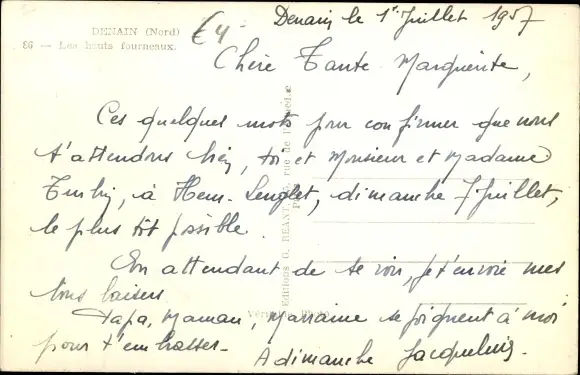 DENAIN (Nord)
86 — Les hauts fourneaux.
€4
Denain le 1er Juillet 1957
Chère Tante Marguerite,
Ces quelques mots pour confirmer que nous
t'attendons bien, toi et Monsieur et Madame
à Hem-Lenglet, dimanche 7 Juillet,
le plus tôt possible.
En attendant de te voir, je t'envoie mes
bons baisers
Papa, Maman, Marraine se joignent à moi
pour t'embrasser.
A dimanche Jacqueline.
Editions G. REANT, rue de
Véritable Photo